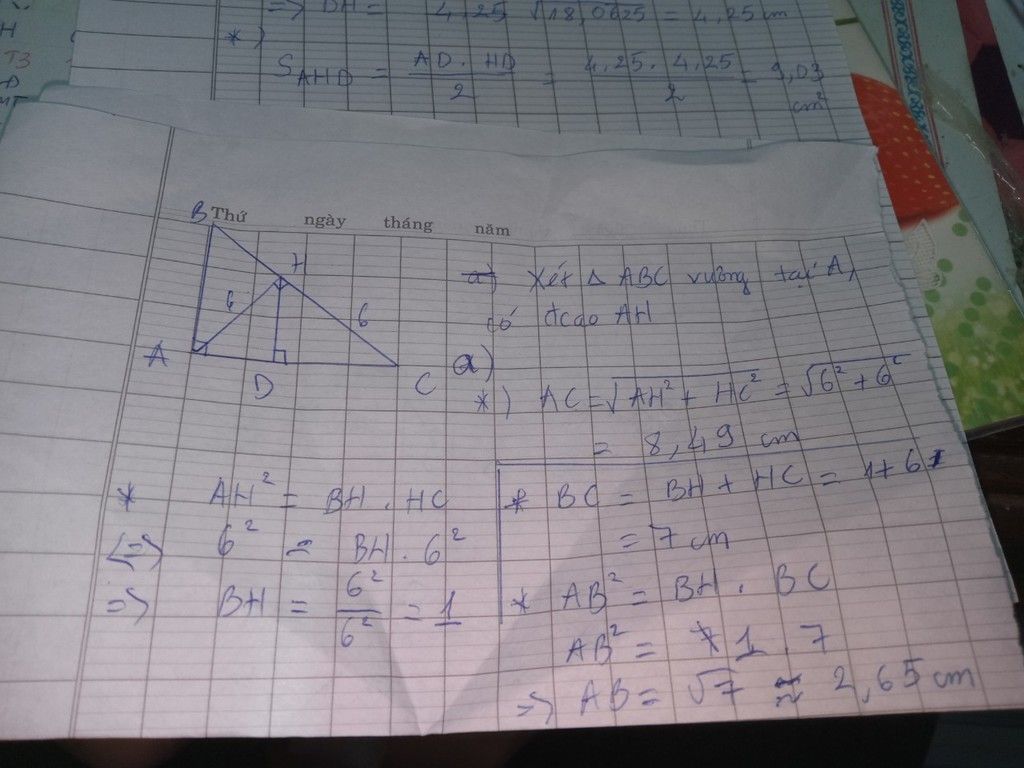 => DH = 4,25 √18,0625 = 4,25 cm
*)
S AHD = AD . HD / 2 = 4,25 . 4,25 / 2 = 9,03 cm²
H
T3
Thứ ngày tháng năm
B
H
6
6
A
D
C
a) Xét △ ABC vuông tại A,
có đcao AH
a)
*) AC = √AH² + HC² = √6² + 6²
= 8,49 cm
* AH² = BH . HC
<=> 6² = BH . 6²
=> BH = 6² / 6² = 1
* BC = BH + HC = 1 + 6
= 7 cm
* AB² = BH . BC
AB² = 1 . 7
=> AB = √7 ≈ 2,65 cm